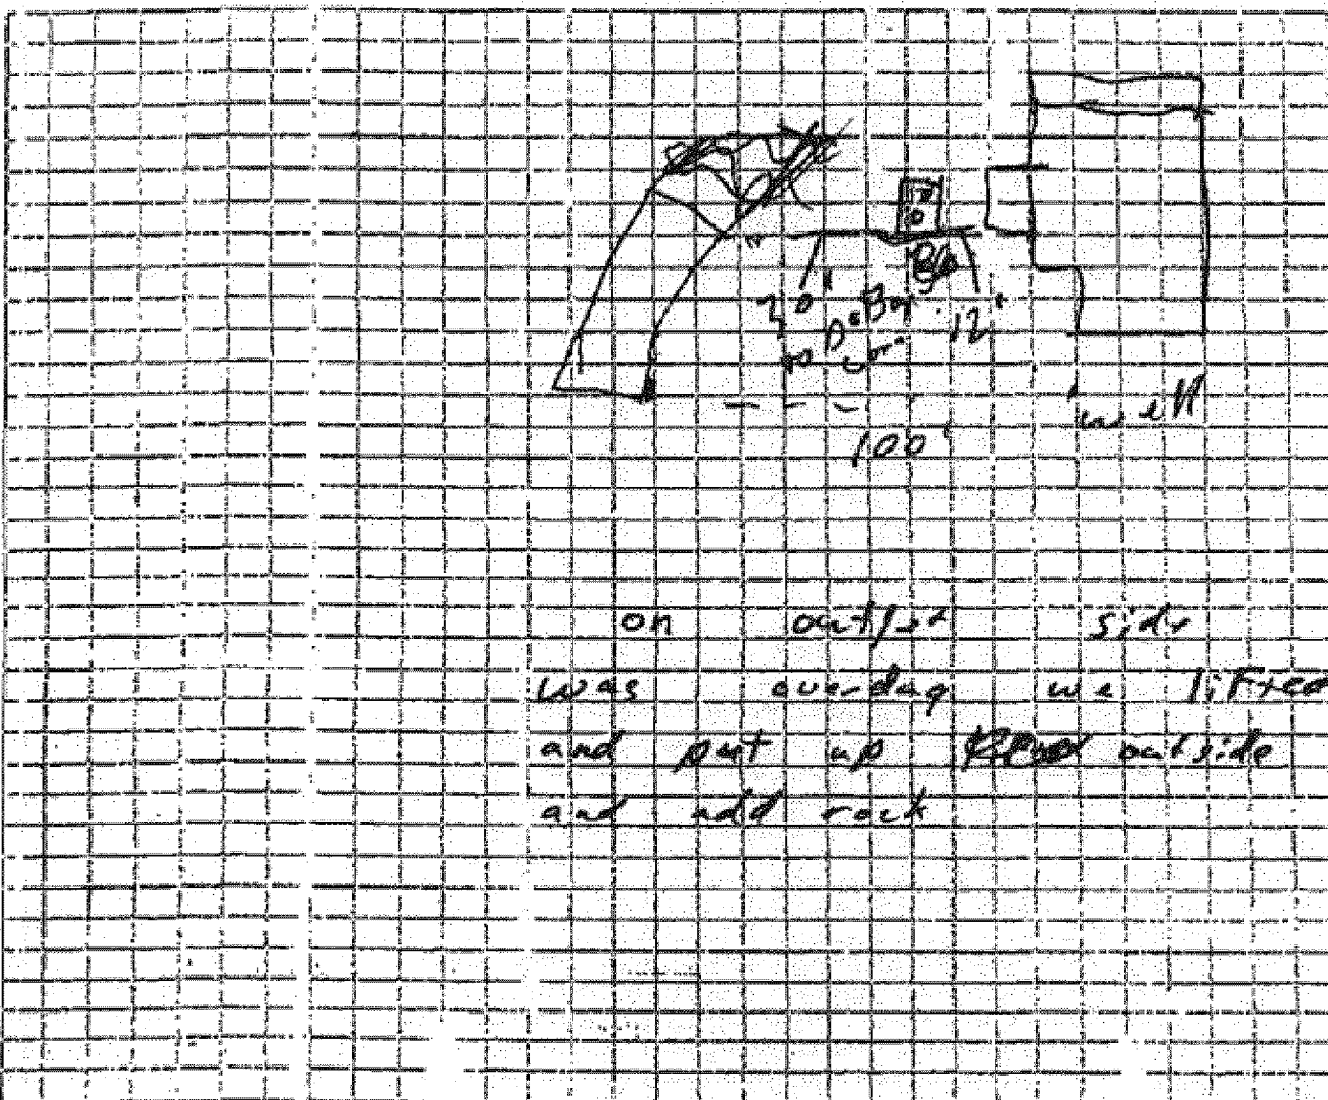 20'
to D-Box
12'
well
100'
on outlet side
was overdug we lifted
and put up outside
and add rock